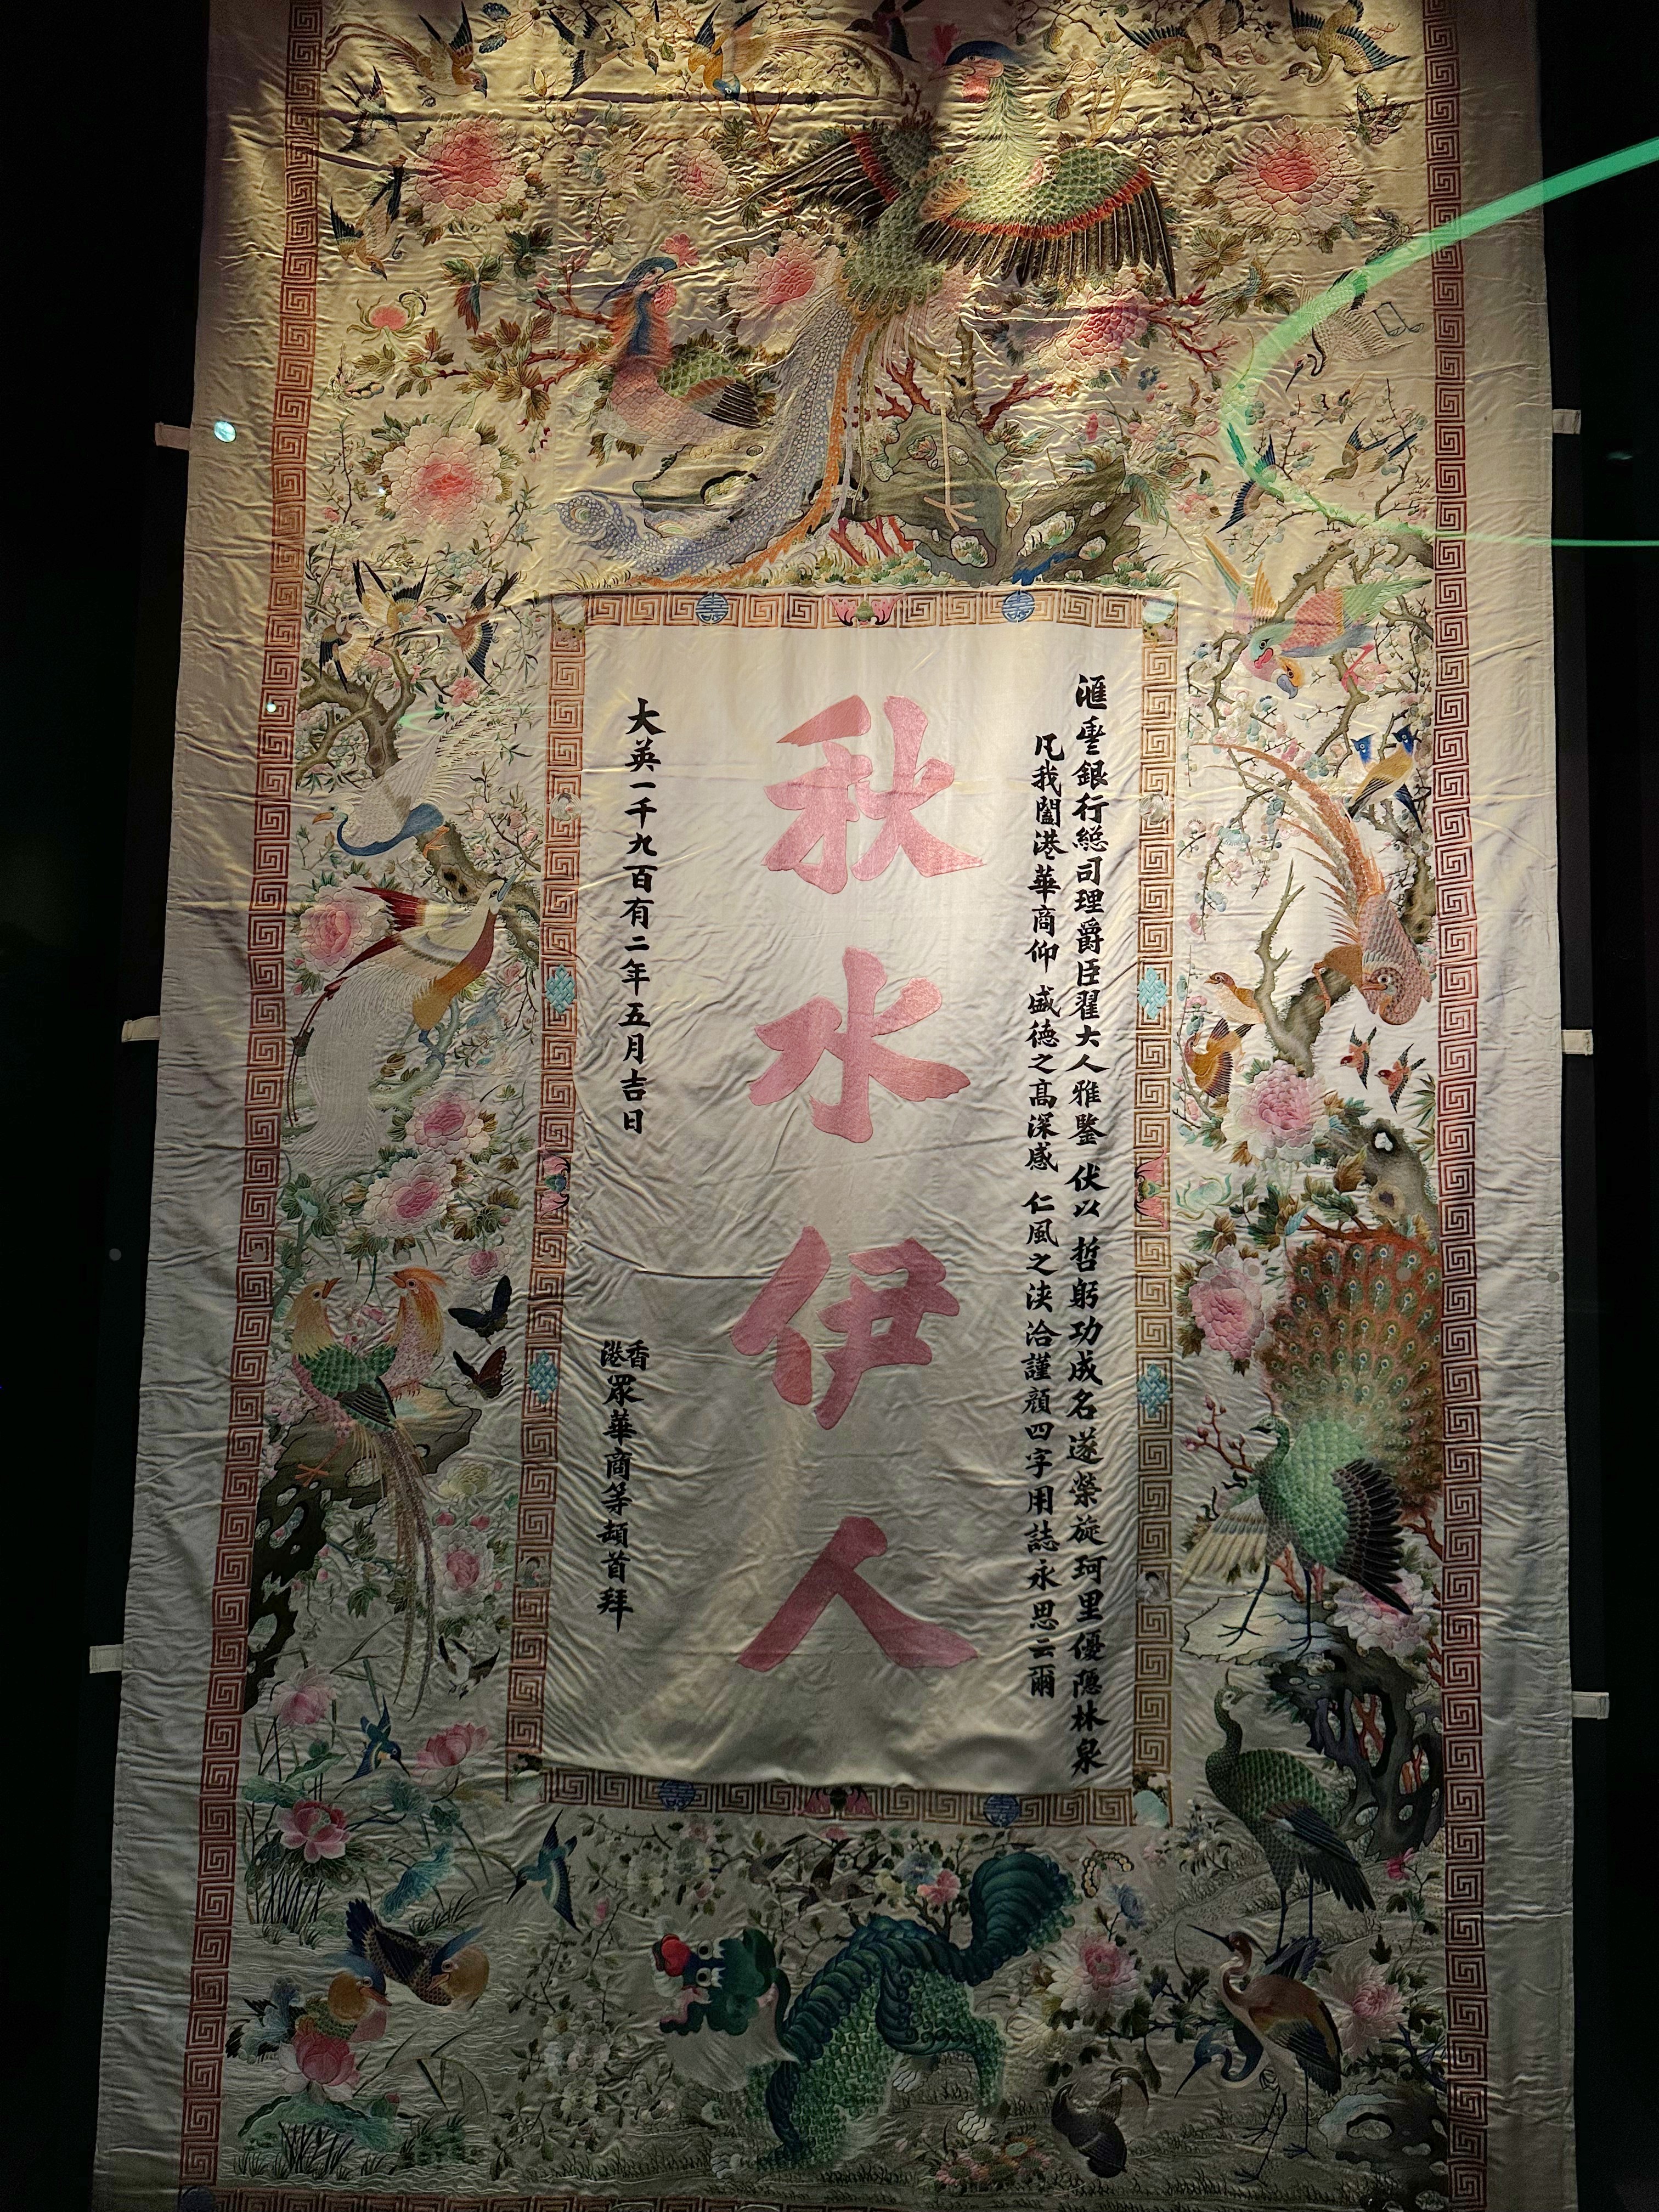 滙豐銀行總司理爵臣翟大人雅鑒 伏以 哲躬功成名遂榮旋珂里優隱林泉
凡我闔港華商仰 盛德之高深感 仁風之浹洽謹顏四字用誌永思云爾
秋水伊人
大英一千九百有二年五月吉日
香港眾華商等頓首拜